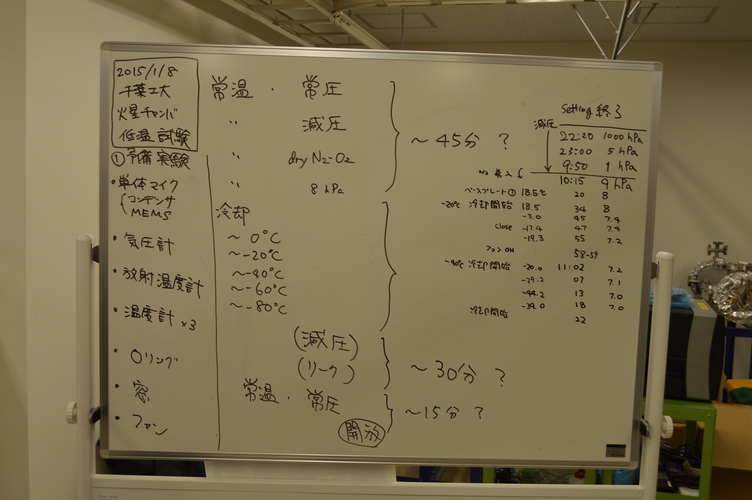 2015/1/8
千葉工大
火星チャンバ
低温試験
①予備実験
・単体マイク
コンデンサ
MEMS
・気圧計
・放射温度計
・温度計×3
・Oリング
・窓
・ファン
常温・常圧
〃 減圧
〃 dry N2-O2
〃 8 hPa
~45分 ?
冷却
~0℃
~-20℃
~-40℃
~-60℃
~-80℃
(減圧)
(リーク)
~30分 ?
常温・常圧
開放
~15分 ?
Setting 終了
減圧 22:20 1000 hPa
23:00 5 hPa
9:50 1 hPa
N2 導入 10:15 9 hPa
ベースプレート① 18.5℃ 20 8
-20℃ 冷却開始 18.5 34 8
45 7.4
close -17.4 47 7.4
-19.3 55 7.2
ファンON 58-59
冷却開始 -20.0 11:02 7.2
-29.2 07 7.1
-44.2 13 7.0
-39.0 18 7.0
冷却開始 22